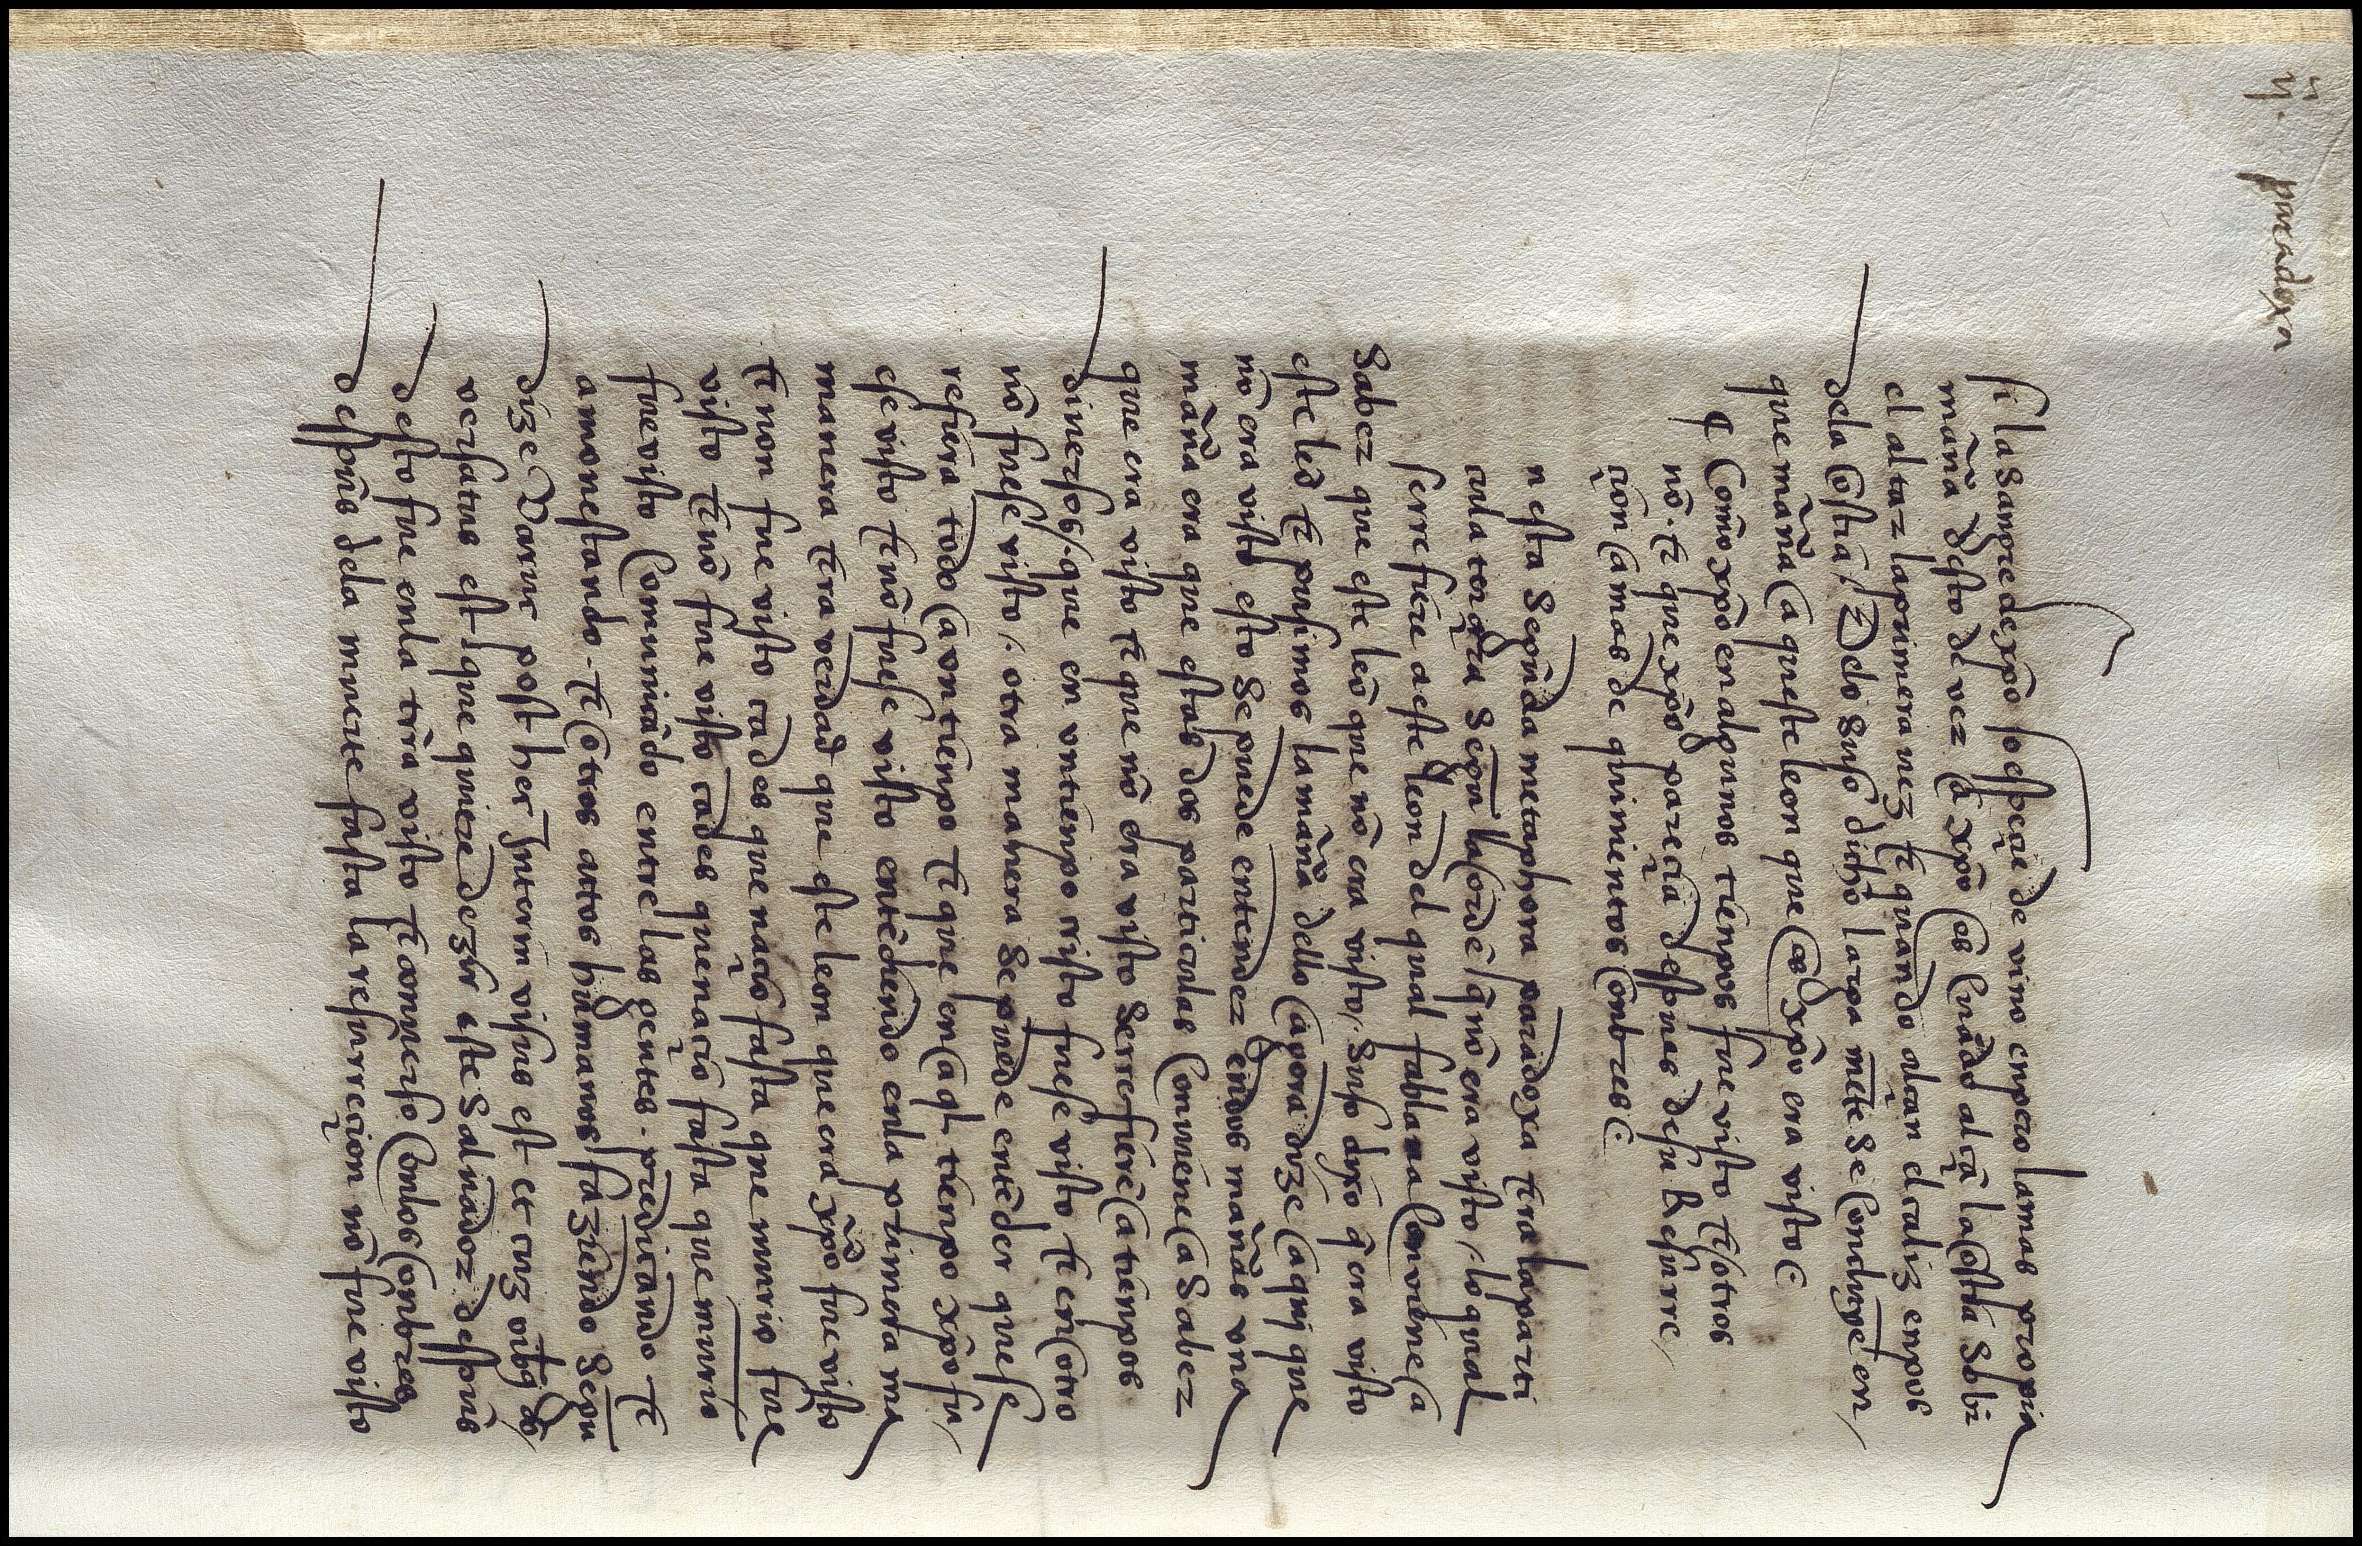 ij. paradoxa
si la sangre de xpo so espeçie de vino enpero la mas propia
mañã desto de vez a xpo es cuãdo alçã la ostia sobr
el altar la primera vez & quando alçan el caliz enpos
dela ostia / Delo suso dicho larga mẽte se concluye en
que mañã aqueste leon que es xpo era visto
¶ Como xpo en algunos tienpos fue visto & otros
nõ. & que xpo pareçia despues de su Resurre
çiõn a mas de quinientos onbres
n esta segũda metaphora paradoxa & ra la parti
cula terçera segũ la ordẽ / q̃ nõ era visto / lo qual
se rrefiere a este leon del qual fabla na conviene a
saber que este leõ que nõ era visto / suso dixo q̃ era visto
este leõ & pusimos la mañã dello agora dize aqui que
nõ era visto esto se puede entender en dos mañãs una
mañã era que estas dos particulas conviene a saber
que era visto & que nõ era visto se rrefierẽ a tienpos
diversos / que en un tienpo visto fuese visto & en otro
nõ fuese visto / otra manera se puede entẽder que se
refiera todo a un tienpo & que en aql tienpo xpo fu
ese visto & nõ fuese visto entẽdiendo enla primera ma
manera & ra verdad que este leon que era xpo fue visto
& non fue visto ca des que naçio fasta que murio fue
visto & nõ fue visto ca des que naçio fasta que murio
fue visto comunicãdo entre las gentes. predicando &
amonestando. & otros attos humanos faziendo segũ
dize Daruc post hec in terris visus est et cuz oībq con
versatus est / que quiere dezir este saluador despues
desto fue enla trra visto & converso con los onbres
despues dela muerte fasta la resurreçion nõ fue visto